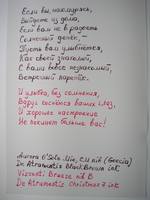 Если вы, нахмурясь,
Выйдете из дома,
Если вам не в радость
Солнечный денёк, -
Пусть вам улыбнётся,
Как своей знакомой,
С вами вовсе незнакомый,
Встречный паренёк.
И улыбка, без сомнения,
Вдруг коснётся ваших глаз,
И хорошее настроение
Не покинет больше вас!
Aurora O'Sole Mio, CM nib (Goccia)
De Atramentis Black Brown ink
Visconti Breeze nib B
De Atramentis Christmas 7 ink